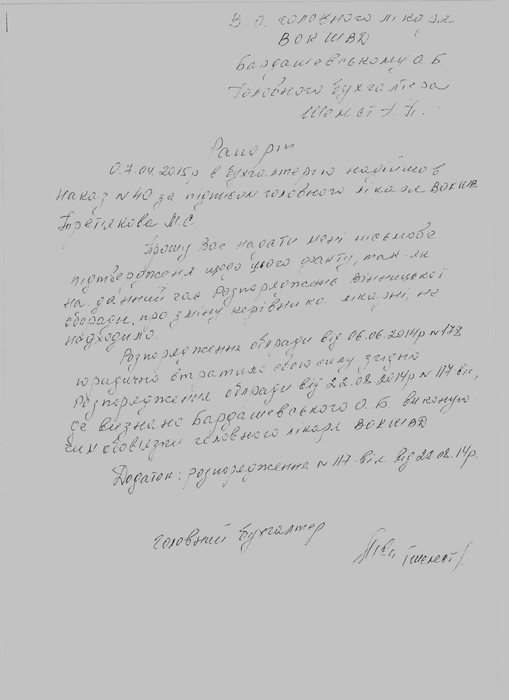 В. о. головного лікаря
ВОКШВД
Бардашевському О. Б
Головного бухгалтера
Шелест
Рапорт
07.04.2015р в бухгалтерію надійшов
наказ N 40 за підписом головного лікаря ВОКШВД
Третякова М.С.
Прошу Вас надати мені письмове
підтвердженя щодо цього факту, так як
на данний час Розпоряджень Вінницької
облради, про зміну керівника лікарні, не
надходило.
Розпорядження облради від 06.06.2014р N 178
юридично втратило свою силу згідно
Розпорядження облради від 22.08.2014р N 117 вк,
де визнано Бардашевського О. Б. виконую-
чим обовязки головного лікаря ВОКШВД
Додаток: розпорядження N 117 від 22.08.14р.
Головний бухгалтер
Шелест